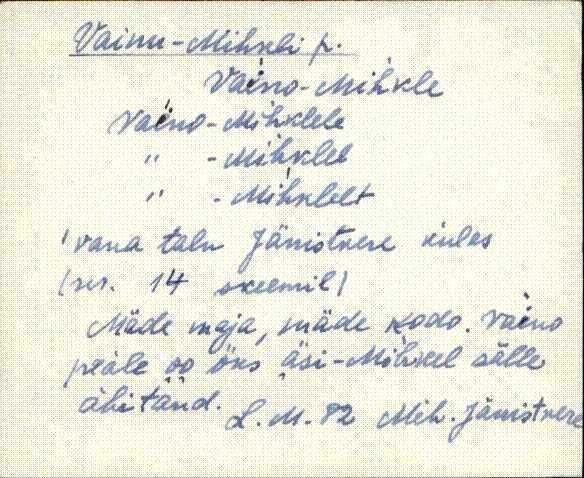 Vainu-Mihkli p.
Vaino-Mihkle
Vaino-Mihklele
" -Mihklel
" -Mihklelt
'vana talu Jänistvere külas
(ser. 14 skeemil)
Mäde maja, mäde kodo. Vaino
peäle oo üks äsi-Mihkel sälle
ähitänd.
L.M.-82 Mih. Jänistvere